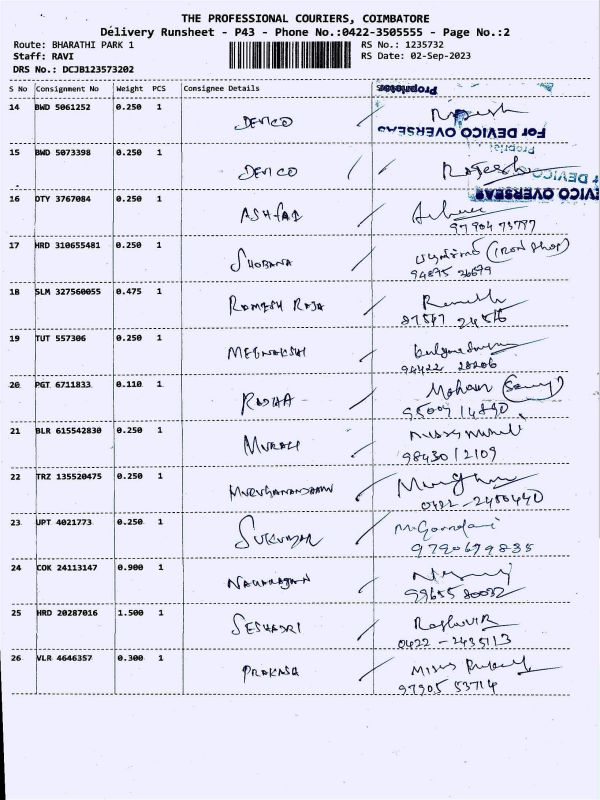 THE PROFESSIONAL COURIERS, COIMBATORE
Delivery Runsheet - P43 - Phone No.:0422-3505555 - Page No.:2
Route: BHARATHI PARK 1 RS No.: 1235732
Staff: RAVI RS Date: 02-Sep-2023
DRS No.: DCJB123573202
S No Consignment No Weight PCS Consignee Details Proprietor
14 BWD 5061252 0.250 1 DEVICO
For DEVICO OVERSEAS
15 BWD 5073398 0.250 1 DEVICO Rajesh
DEVICO OVERSEAS
16 DTY 3767084 0.250 1 ASHFAQ
97904 73797
17 HRD 310655481 0.250 1 SHOBANA (IRON Shop)
94895 26699
18 SLM 327560055 0.475 1 RAMESH RAJA Ramesh
87547 24816
19 TUT 557306 0.250 1 MEENAKSHI
94422 28206
20 PGT 6711833 0.110 1 RADHA Mohan
95009 14890
21 BLR 615542830 0.250 1 MURALI
98430 12109
22 TRZ 135520475 0.250 1 MURUGANANDHAM
0422-2480440
23 UPT 4021773 0.250 1 SUKUMAR
9790699835
24 COK 24113147 0.900 1 NATARAJAN
99655 80032
25 HRD 20287016 1.500 1 SESHADRI Raghavir
0422-2435113
26 VLR 4646357 0.300 1 PRAKASA
97905 53714